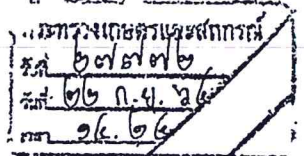 กระทรวงเกษตรและสหกรณ์
รับที่ ๒๗๗๗๒
วันที่ ๒๒ ก.ย. ๖๔
เวลา ๑๔.๒๔